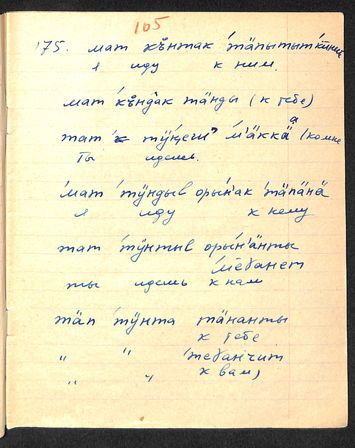 105
175. мат къ̊нтак 'тӓпытыт'кӣнӣ
я иду к ним.
мат къ̊ндак тӓнды (к тебе)
тат 'тӱӈеш м'ӓккӓ (ко мне
ты идешь.
'мат 'тӱндыв оры́нак 'тӓпӓнӓ
я иду к нему
тат 'тӱнтыв оры́н'ӓнты
'меганет
ты идешь к нам
тӓп 'тӱнта тӓнанты
к тебе
" " 'теганчит
" " к вам,